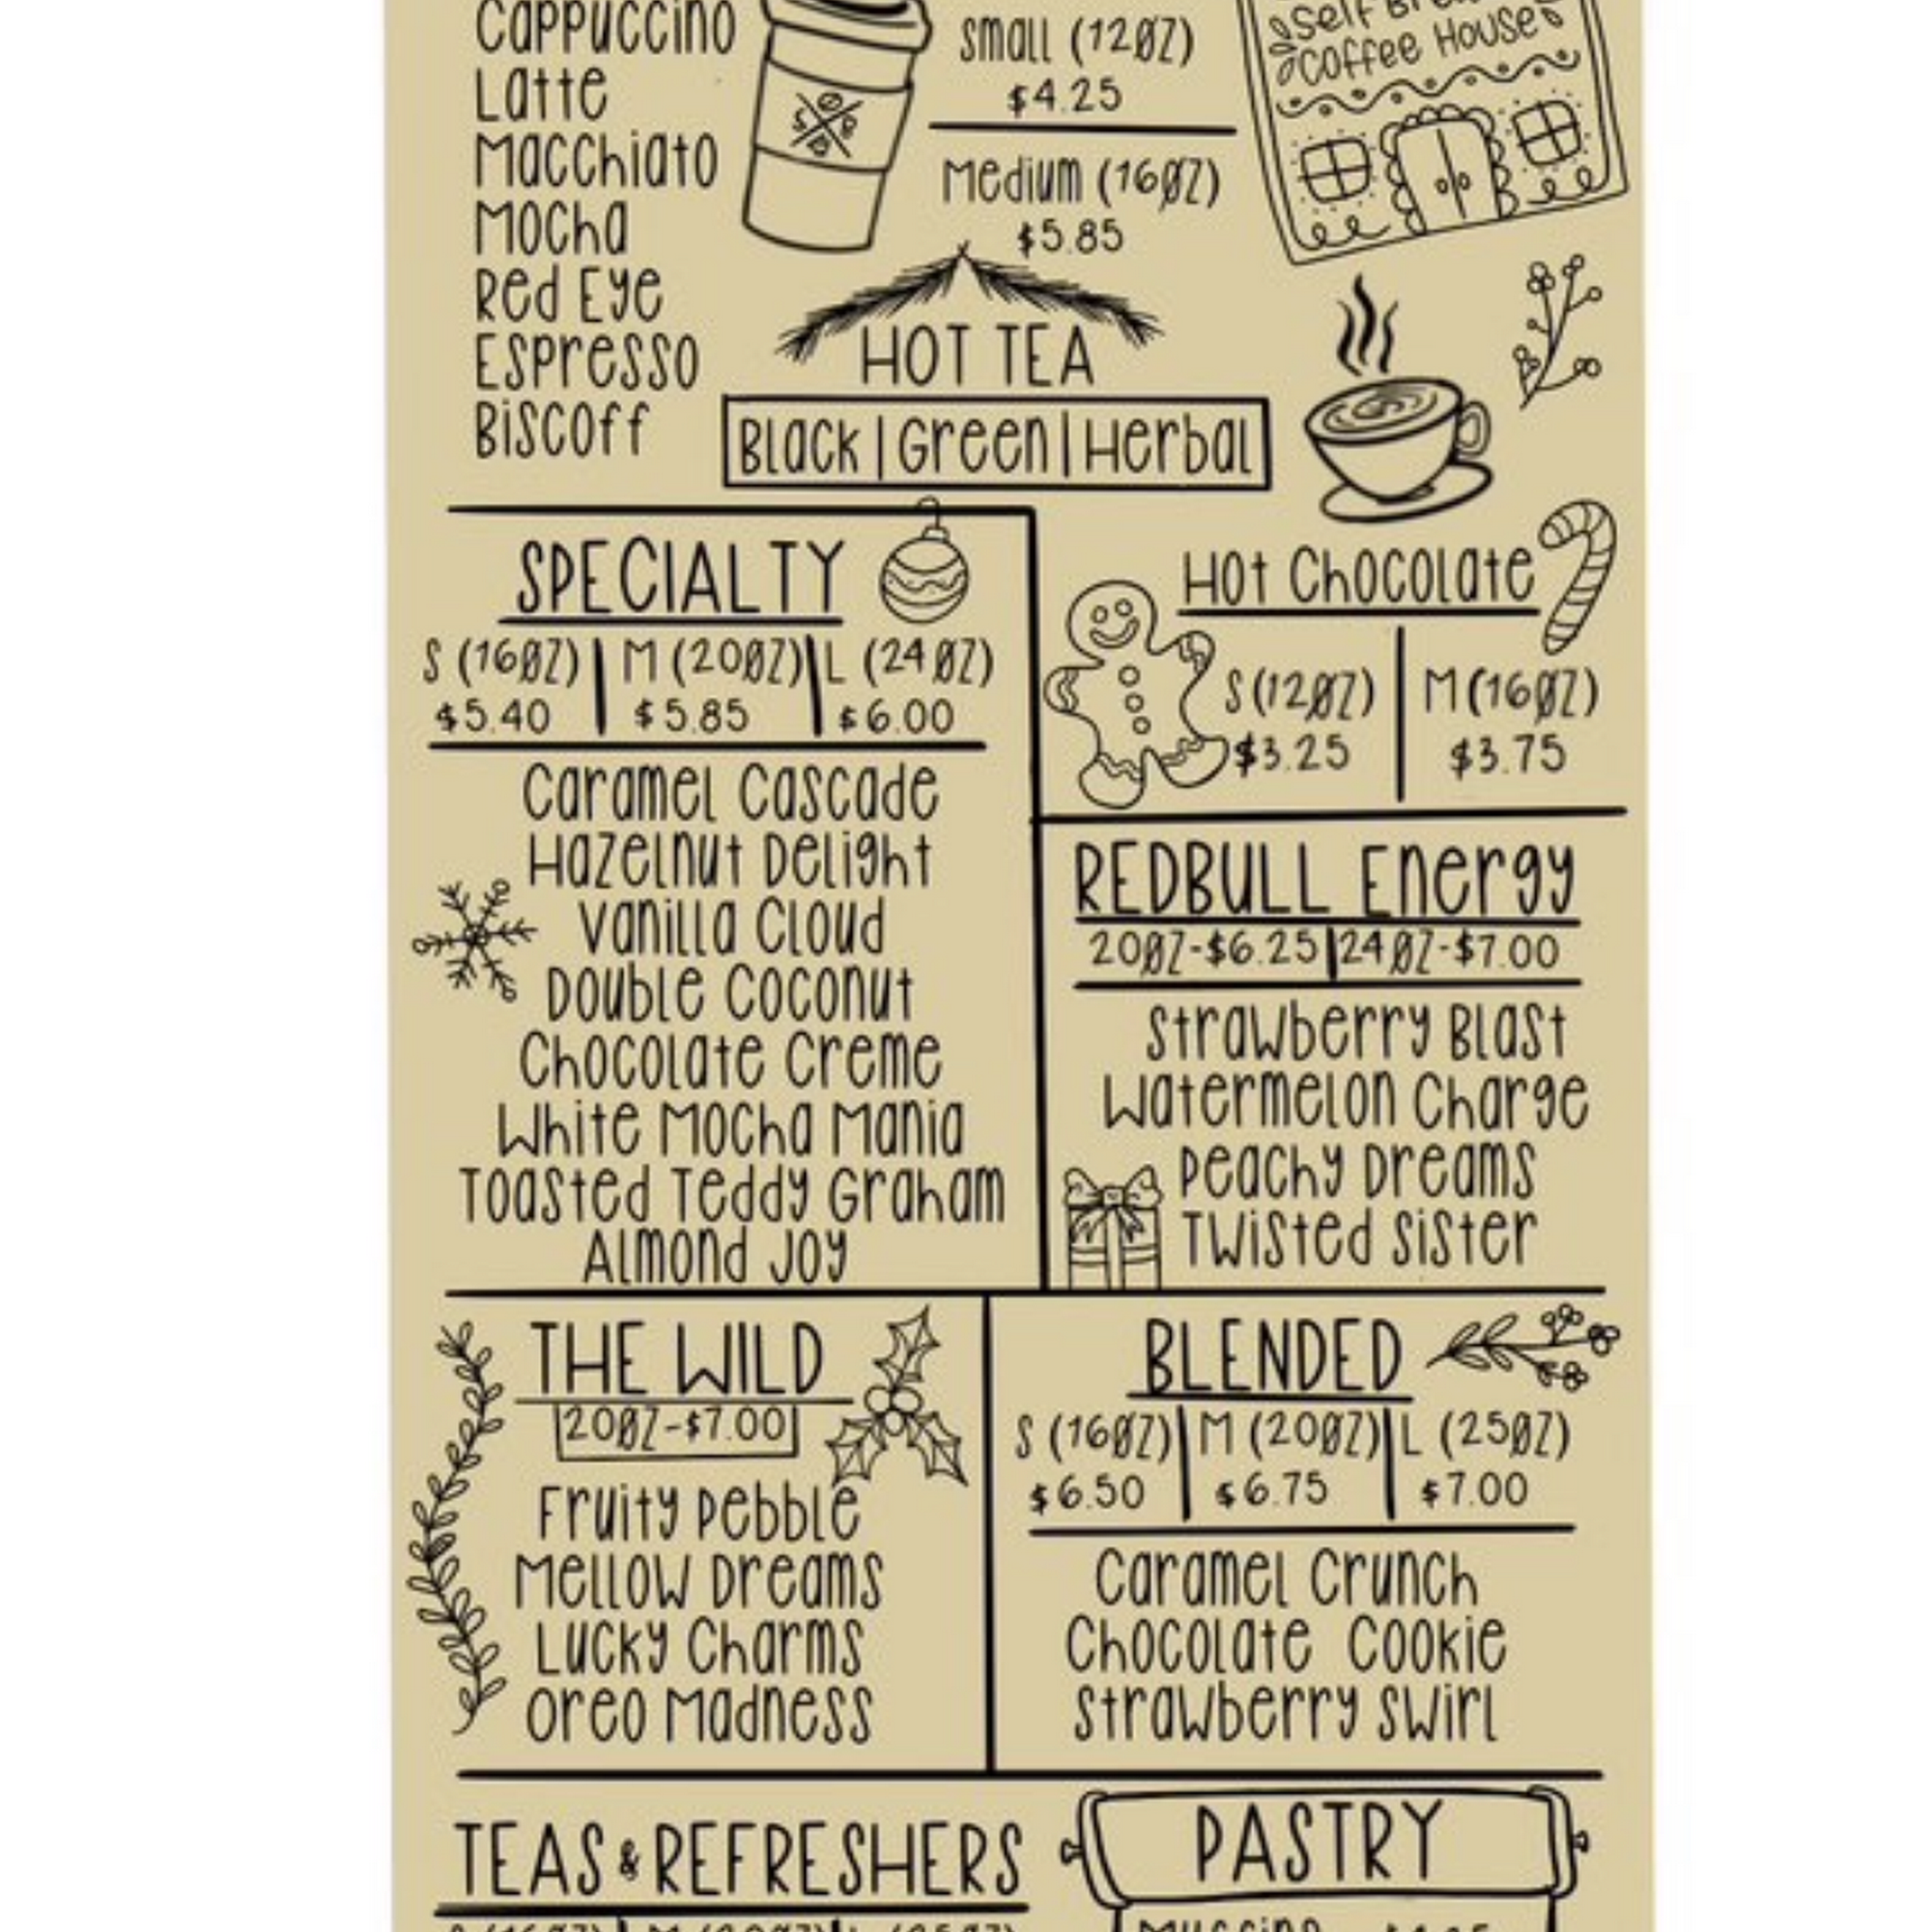 Cappuccino
Latte
Macchiato
Mocha
Red Eye
Espresso
Biscoff
Small (12ØZ)
$4.25
Medium (16ØZ)
$5.85
Self
Coffee House
HOT TEA
Black | Green | Herbal
SPECIALTY
S (16ØZ) | M (20ØZ) | L (24ØZ)
$5.40 | $5.85 | $6.00
Caramel Cascade
Hazelnut Delight
Vanilla Cloud
Double Coconut
Chocolate Creme
White Mocha Mania
Toasted Teddy Graham
Almond Joy
Hot Chocolate
S (12ØZ) | M (16ØZ)
$3.25 | $3.75
REDBULL Energy
20ØZ-$6.25 | 24ØZ-$7.00
Strawberry Blast
Watermelon Charge
Peachy Dreams
Twisted Sister
THE WILD
20ØZ-$7.00
Fruity Pebble
Mellow Dreams
Lucky Charms
Oreo Madness
BLENDED
S (16ØZ) | M (20ØZ) | L (25ØZ)
$6.50 | $6.75 | $7.00
Caramel Crunch
Chocolate Cookie
Strawberry Swirl
TEAS & REFRESHERS
PASTRY
Muffins